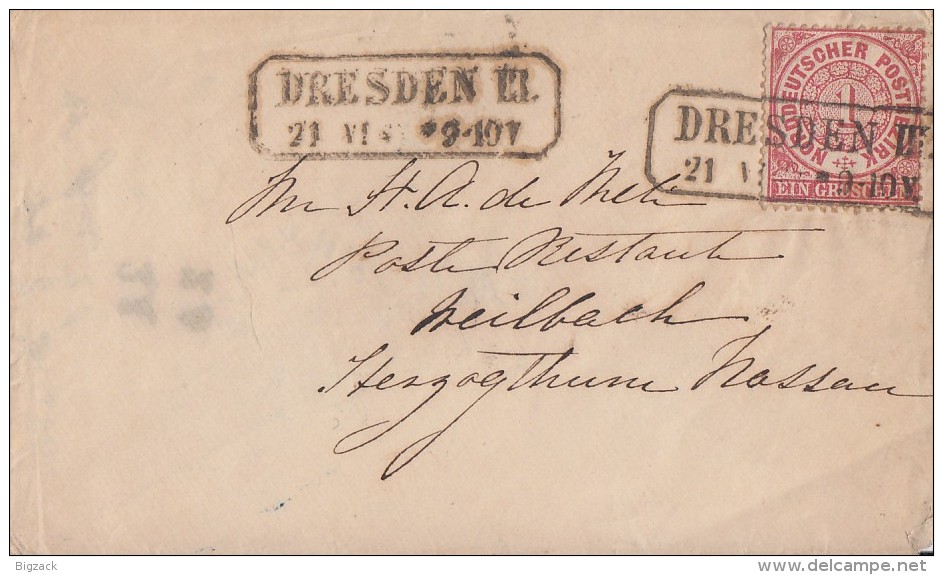 DRESDEN III.
21 VI * 9-10 V
NORDDEUTSCHER POSTBEZIRK
1
EIN GROSCHEN
DRESDEN III.
21 V * 9-10 V
St. A. de
Poste Restante
Weilbach
Herzogthum Nassau
Bigzack
www.delcampe.net